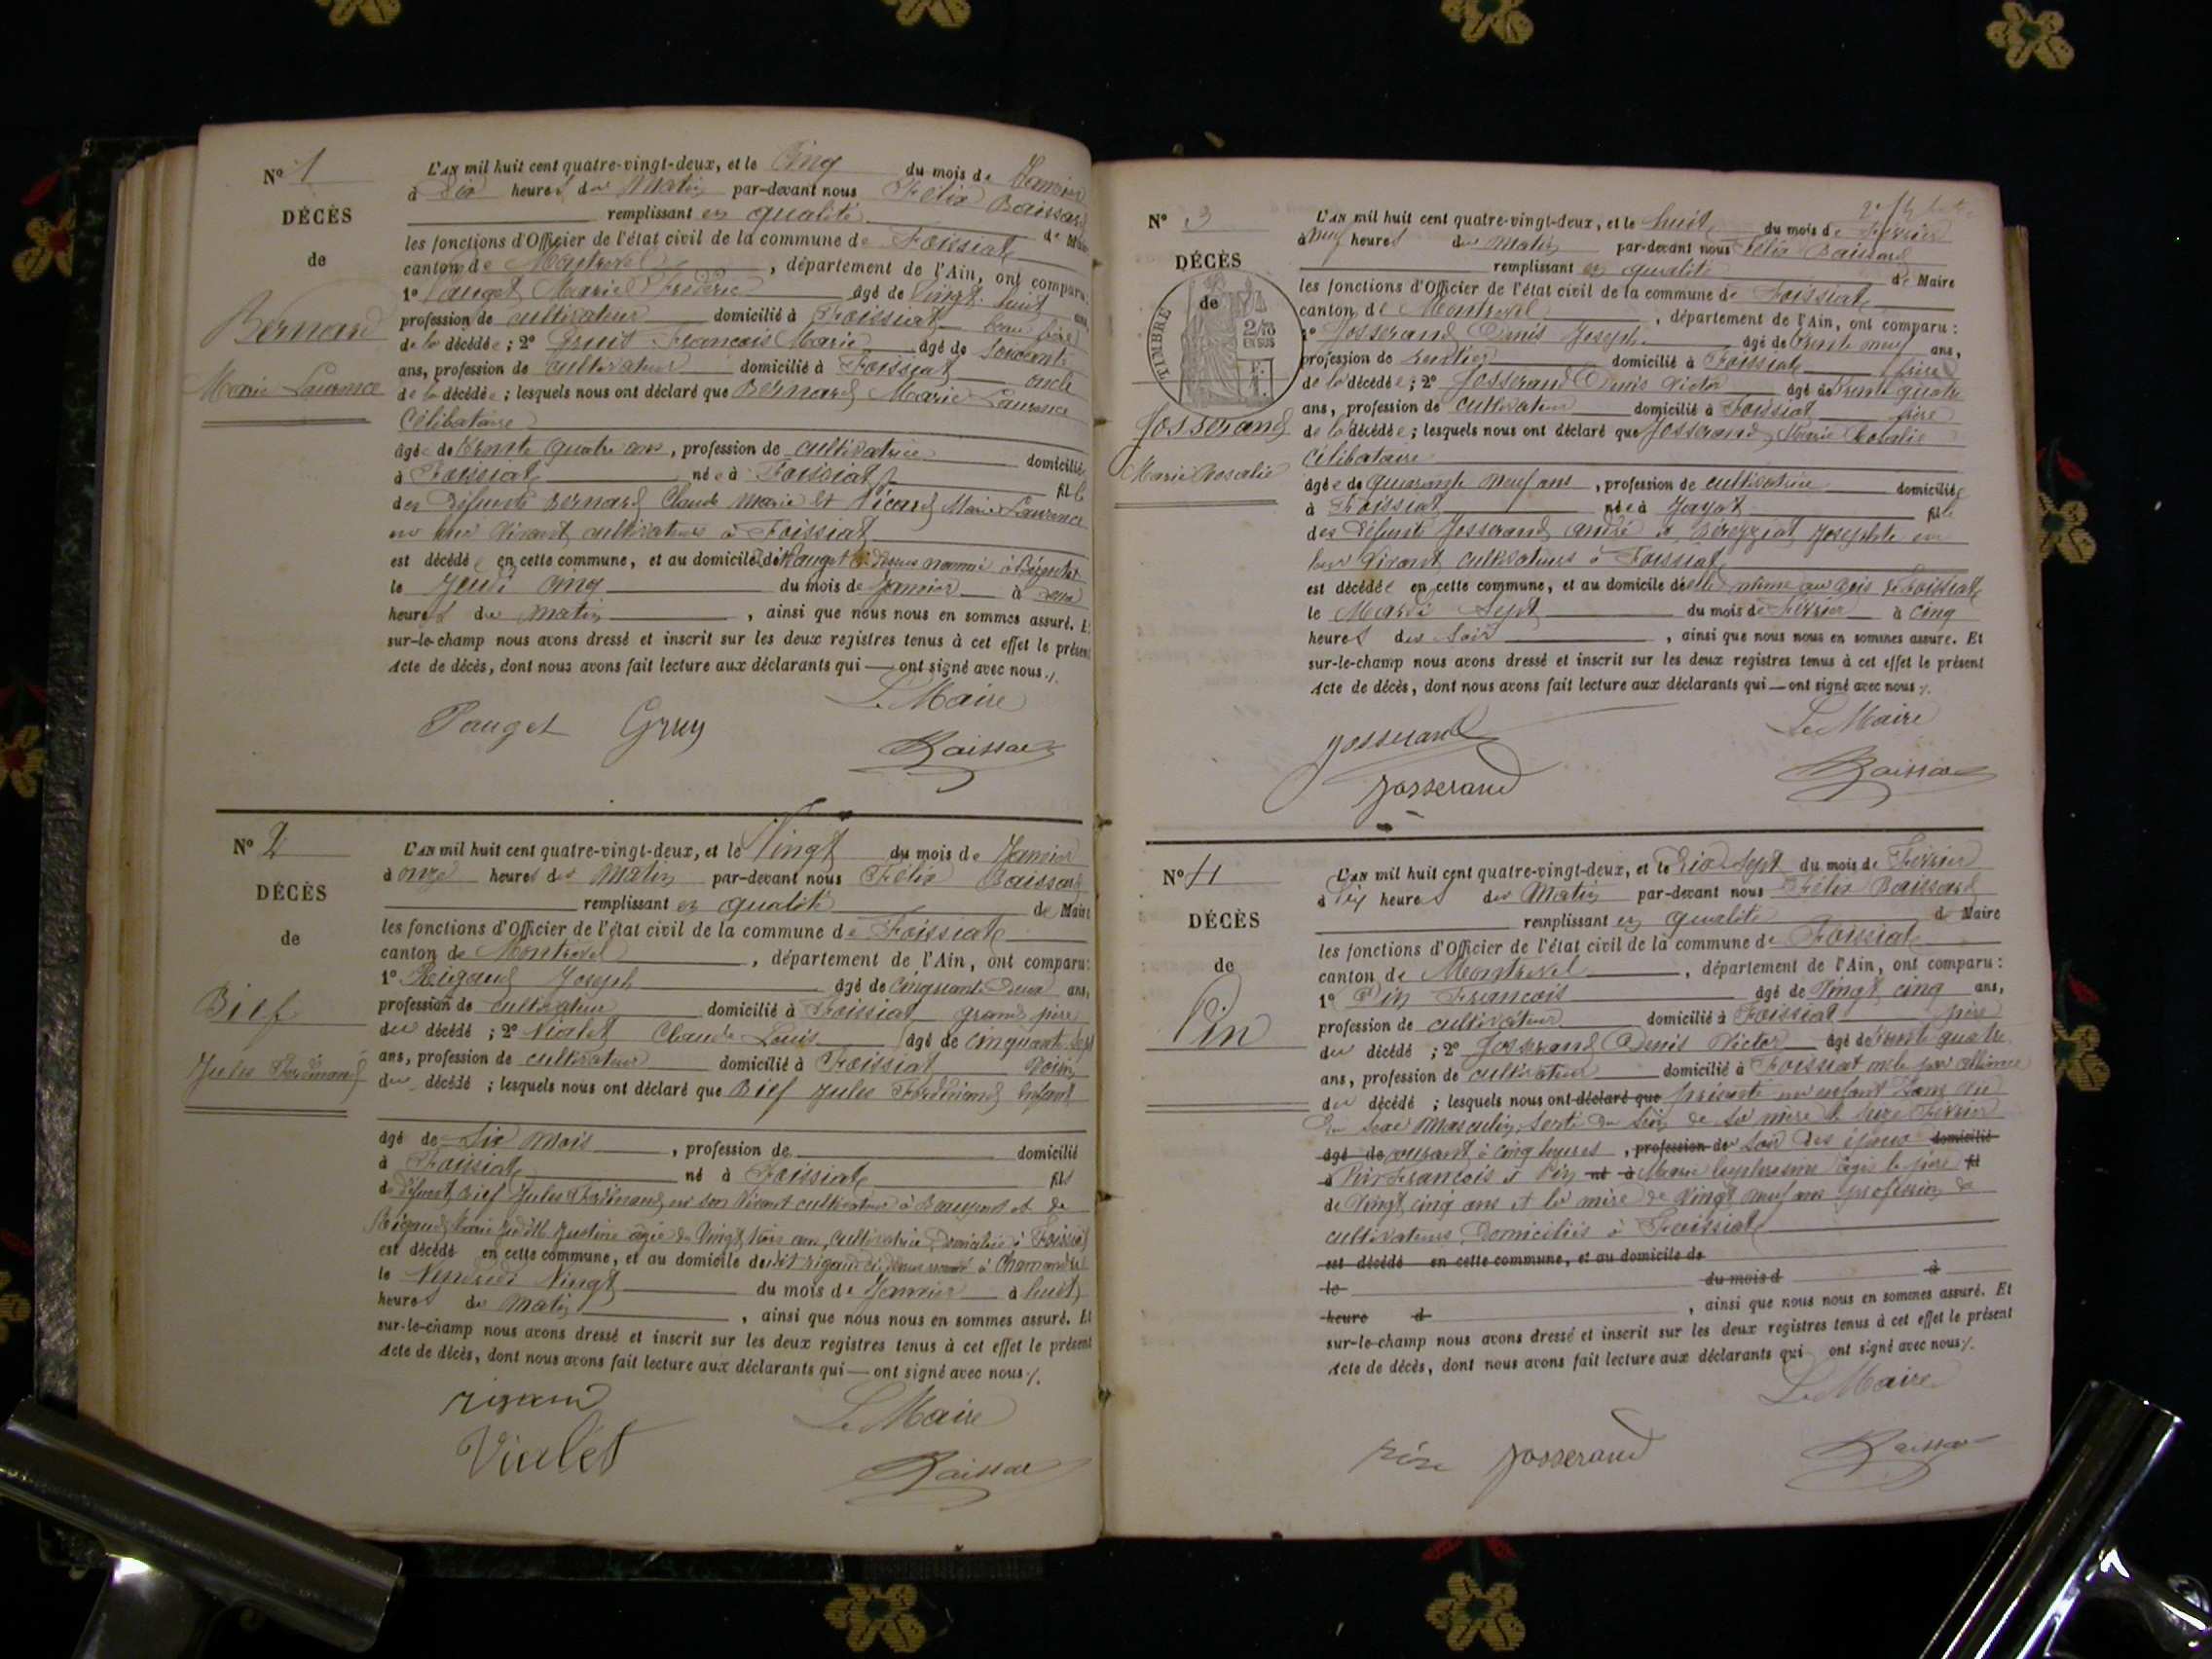 N° 1
DÉCÈS
de
Bernard
Marie Laurence
L'AN mil huit cent quatre-vingt-deux, et le Cinq du mois de Janvier
à Dix heures du Matin par-devant nous Félix Baissard
remplissant en qualité de Maire
les fonctions d'Officier de l'état civil de la commune de Foissiat
canton de Montrevel, département de l'Ain, ont comparu:
1° Pauget Marie Frédéric âgé de Vingt huit ans,
profession de cultivateur domicilié à Foissiat beau frère
de la décédée; 2° François Marie âgé de soixante
ans, profession de cultivateur domicilié à Foissiat oncle
de la décédée; lesquels nous ont déclaré que Bernard Marie Laurence
Célibataire
âgée de Trente quatre ans, profession de cultivatrice domiciliée
à Foissiat née à Foissiat fille
des défunts Bernard Claude Marie et Marie Laurence
en leur vivant cultivateurs à Foissiat
est décédée en cette commune, et au domicile de Pauget dessus nommé à
le Jeudi cinq du mois de Janvier à
heures du matin, ainsi que nous nous en sommes assuré. Et
sur-le-champ nous avons dressé et inscrit sur les deux registres tenus à cet effet le présent
Acte de décès, dont nous avons fait lecture aux déclarants qui — ont signé avec nous ./.
Le Maire
Pauget Gruy
Baissard
N° 2
DÉCÈS
de
Bief
Jules Ferdinand
L'AN mil huit cent quatre-vingt-deux, et le Vingt du mois de Janvier
à onze heures du Matin par-devant nous Félix Baissard
remplissant en qualité de Maire
les fonctions d'Officier de l'état civil de la commune de Foissiat
canton de Montrevel, département de l'Ain, ont comparu:
1° Rigaud Joseph âgé de cinquante deux ans,
profession de cultivateur domicilié à Foissiat grand père
du décédé; 2° Vialet Claude Louis âgé de cinquante sept
ans, profession de cultivateur domicilié à Foissiat voisin
du décédé; lesquels nous ont déclaré que Bief Jules Ferdinand Enfant
âgé de Six mois, profession de domicilié
à Foissiat né à Foissiat fils
de défunt Bief Jules Ferdinand en son vivant cultivateur à et de
Rigaud Marie Justine âgée de Vingt trois ans, cultivatrice, Domiciliée à Foissiat
est décédé en cette commune, et au domicile dudit rigaud ci dessus nommé à
le Vendredi Vingt du mois de Janvier à huit
heures du matin, ainsi que nous nous en sommes assuré. Et
sur-le-champ nous avons dressé et inscrit sur les deux registres tenus à cet effet le présent
Acte de décès, dont nous avons fait lecture aux déclarants qui — ont signé avec nous ./.
rigaud Le Maire
Vialet
Baissard
N° 3
DÉCÈS
de
TIMBRE
2/10
EN SUS
Josserand
Marie Rosalie
L'AN mil huit cent quatre-vingt-deux, et le huit du mois de Février
à neuf heures du matin par-devant nous Félix Baissard
remplissant en qualité de Maire
les fonctions d'Officier de l'état civil de la commune de Foissiat
canton de Montrevel, département de l'Ain, ont comparu:
1° Josserand Denis Joseph âgé de trente neuf ans,
profession de rentier domicilié à Foissiat frère
de la décédée; 2° Josserand Denis Victor âgé de trente quatre
ans, profession de cultivateur domicilié à Foissiat frère
de la décédée; lesquels nous ont déclaré que Josserand Marie Rosalie
Célibataire
âgée de quarante neuf ans, profession de cultivatrice domiciliée
à Foissiat née à Jayat fille
des défunts Josserand André et Josephte en
leur vivant cultivateurs à Foissiat
est décédée en cette commune, et au domicile d'elle même au Bois de Foissiat
le Mardi Sept du mois de Février à cinq
heures du soir, ainsi que nous nous en sommes assuré. Et
sur-le-champ nous avons dressé et inscrit sur les deux registres tenus à cet effet le présent
Acte de décès, dont nous avons fait lecture aux déclarants qui — ont signé avec nous ./.
Le Maire
Josserand
Josserand
Baissard
N° 4
DÉCÈS
de
Pin
L'AN mil huit cent quatre-vingt-deux, et le Dix Sept du mois de Février
à Dix heures du Matin par-devant nous Félix Baissard
remplissant en qualité de Maire
les fonctions d'Officier de l'état civil de la commune de Foissiat
canton de Montrevel, département de l'Ain, ont comparu:
1° Pin François âgé de Vingt cinq ans,
profession de cultivateur domicilié à Foissiat père
du décédé; 2° Josserand Denis Victor âgé de trente quatre
ans, profession de cultivateur domicilié à Foissiat oncle par alliance
du décédé; lesquels nous ont déclaré que présenté un enfant sans vie
Du sexe Masculin, sorti du sein de sa mère le seize Février
âgé de courant à cinq heures, profession de du soir des époux domicilié
à Pin François et Pin né à Marie âgés le père fil
de Vingt cinq ans et la mère de Vingt neuf ans profession de
cultivateurs, Domiciliés à Foissiat
est décédé en cette commune, et au domicile de
le du mois d à
heure d, ainsi que nous nous en sommes assuré. Et
sur-le-champ nous avons dressé et inscrit sur les deux registres tenus à cet effet le présent
Acte de décès, dont nous avons fait lecture aux déclarants qui ont signé avec nous ./.
Le Maire
Josserand Baissard